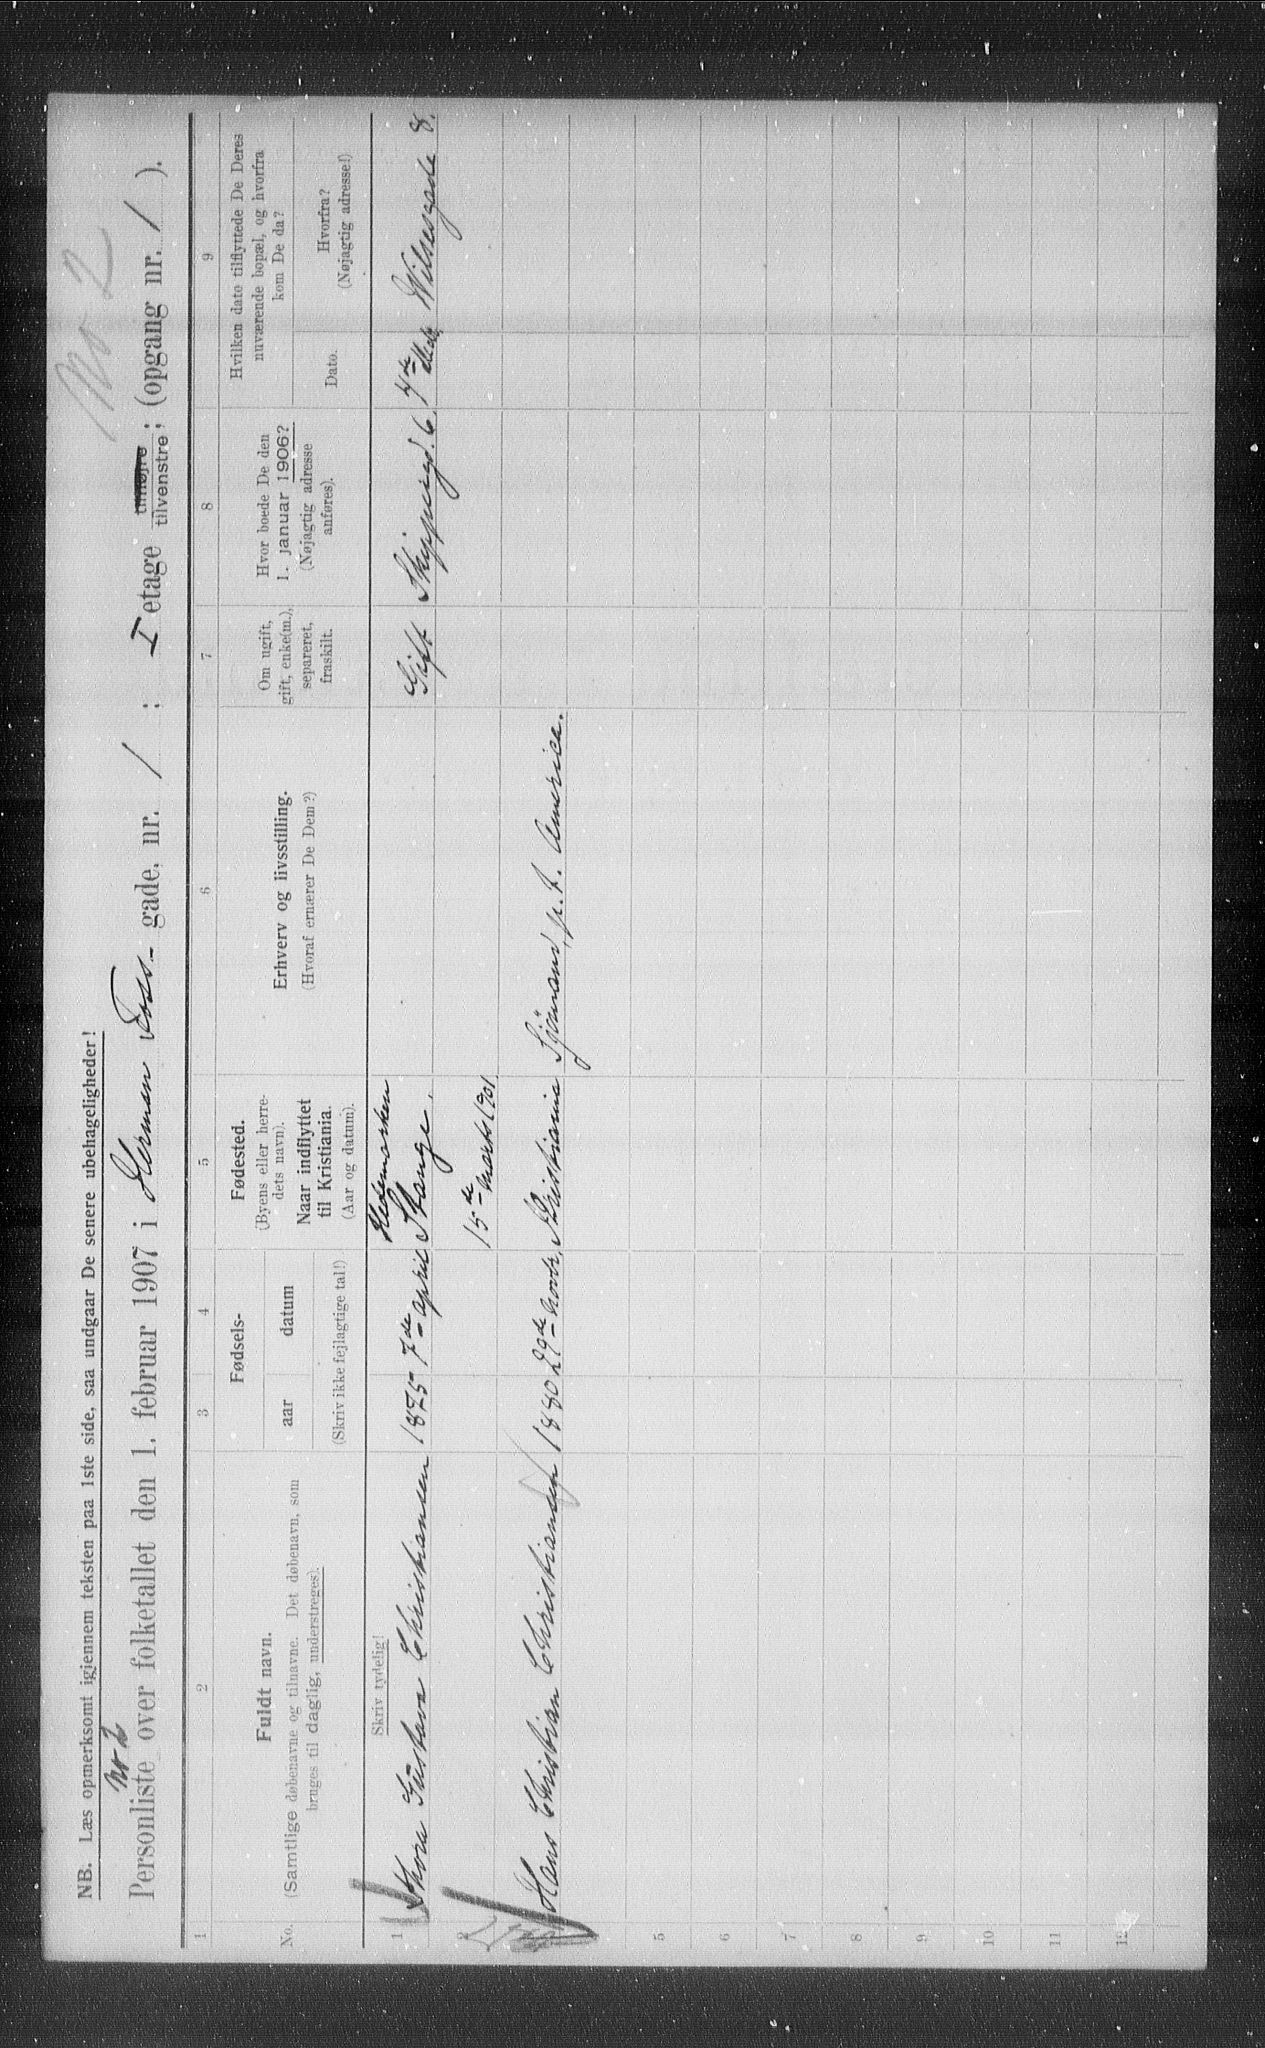 No 2
NB. Læs opmerksomt igjennem teksten paa 1ste side, saa undgaar De senere ubehageligheder!
No 2
Personliste over folketallet den 1. februar 1907 i Herman Foss- gade, nr. 1 ; I etage tilhøjre tilvenstre; (opgang nr. 1 ).
1 2 3 4 5 6 7 8 9
No.
Fuldt navn.
(Samtlige døbenavne og tilnavne. Det døbenavn, som
bruges til daglig, understreges).
Fødsels-
aar datum
(Skriv ikke fejlagtige tal!)
Fødested.
(Byens eller herre-
dets navn).
Naar indflyttet
til Kristiania.
(Aar og datum).
Erhverv og livsstilling.
(Hvoraf ernærer De Dem?)
Om ugift,
gift, enke(m.),
separeret,
fraskilt.
Hvor boede De den
1. januar 1906?
(Nøjagtig adresse
anføres).
Hvilken dato tilflyttede De Deres
nuværende bopæl, og hvorfra
kom De da?
Dato.
Hvorfra?
(Nøjagtig adresse!)
Skriv tydelig!
Hedemarken
1 Thora Gustava Christiansen 1875 7de april Stange. Gift Skipperg. 6. 4de Wilsesgade 8.
2 15de marts 1901.
Hans Christian Christiansen 1880 29de novbr. Kristiania Sjömand, p. t. America.
5
6
7
8
9
10
11
12